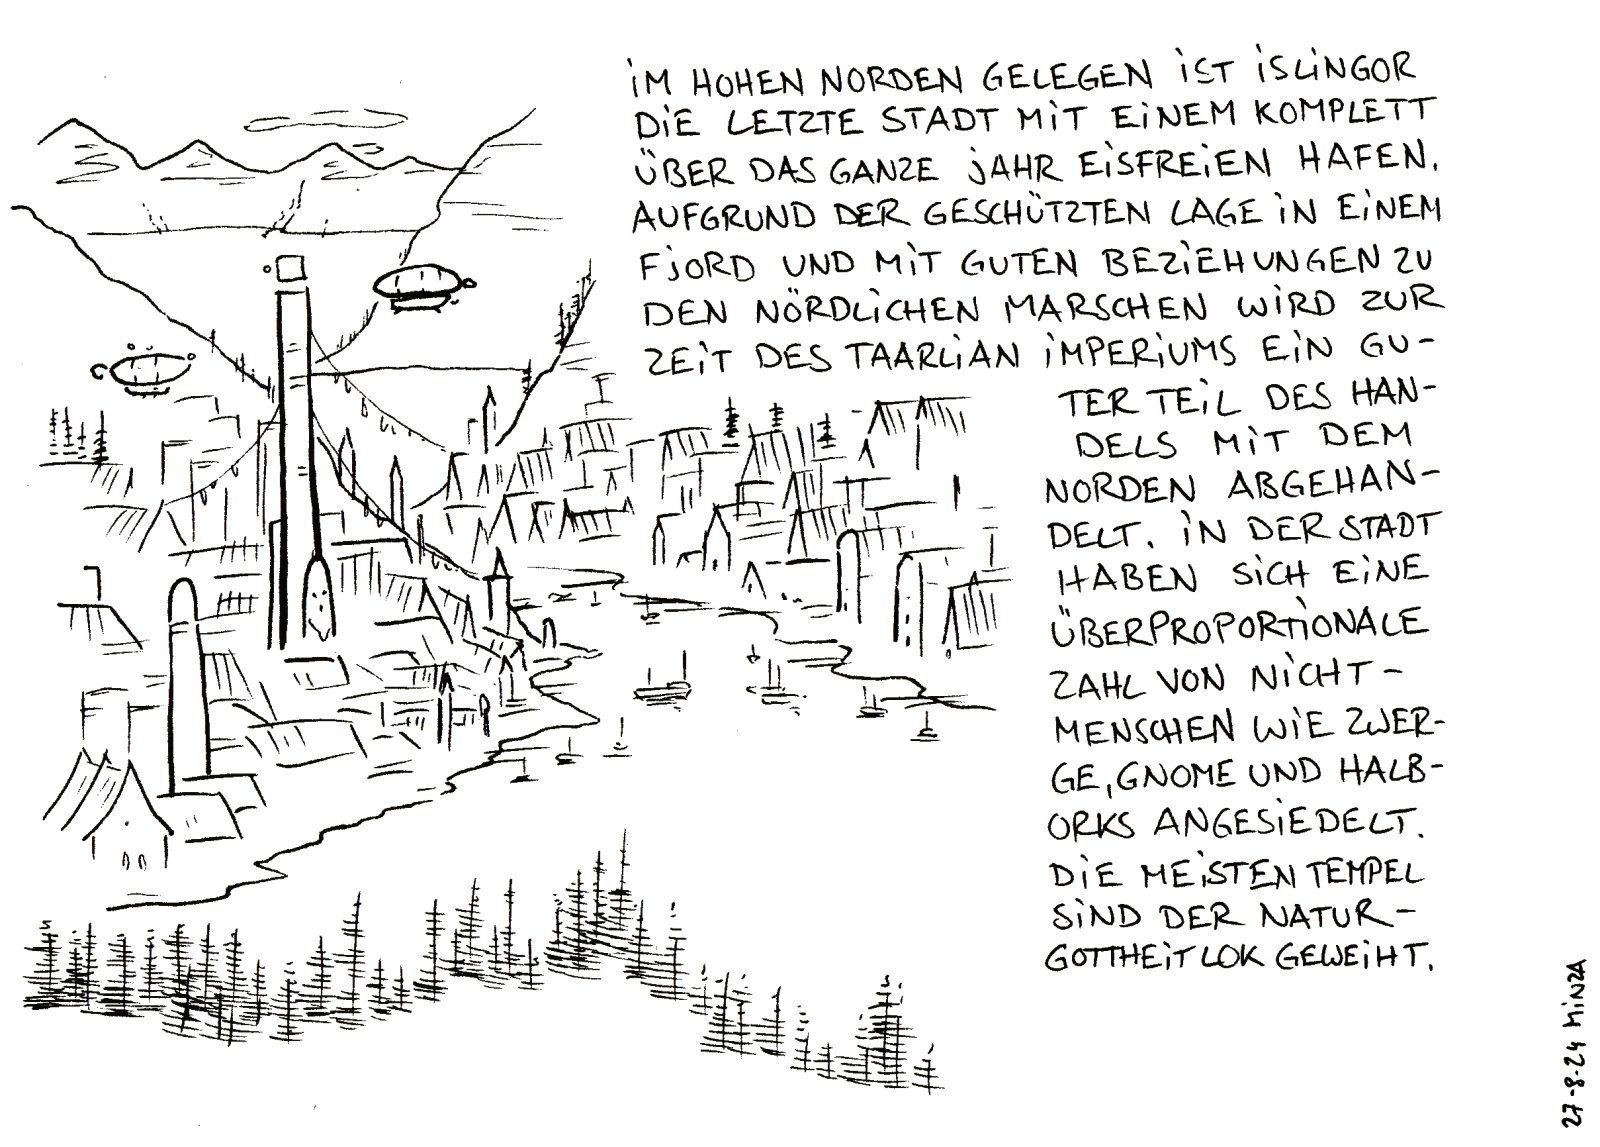 iM HOHEN NORDEN GELEGEN iST iSLiNGOR
DiE LETZTE STADT MiT EiNEM KOMPLETT
ÜBER DAS GANZE JAHR EiSFREiEN HAFEN.
AUFGRUND DER GESCHÜTZTEN LAGE iN EiNEM
FJORD UND MiT GUTEN BEZiEHUNGEN ZU
DEN NÖRDLiCHEN MARSCHEN WiRD ZUR
ZEiT DES TAARLiAN iMPERiUMS EiN GU-
TER TEiL DES HAN-
DELS MiT DEM
NORDEN ABGEHAN-
DELT. iN DER STADT
HABEN SiCH EiNE
ÜBERPROPORTiONALE
ZAHL VON NiCHT-
MENSCHEN WiE ZWER-
GE, GNOME UND HALB-
ORKS ANGESiEDELT.
DiE MEiSTEN TEMPEL
SiND DER NATUR-
GOTTHEiT LOK GEWEiHT.
27-8-24 MiNZA